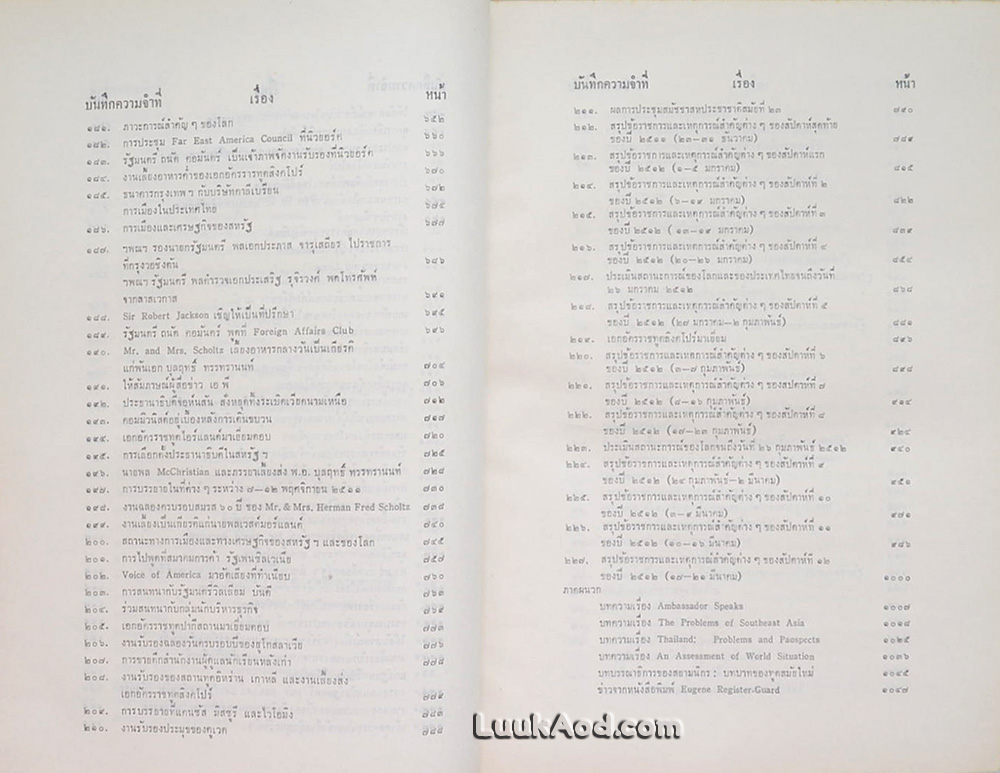 บันทึกความจำที่ เรื่อง หน้า
๑๘๑. ภาวะการณ์สำคัญ ๆ ของโลก ๖๕๒
๑๘๒. การประชุม Far East America Council ที่นิวยอร์ค ๖๖๐
๑๘๓. รัฐมนตรี ถนัด คอมันตร์ เป็นเจ้าภาพจัดงานรับรองที่นิวยอร์ค ๖๖๖
๑๘๔. งานเลี้ยงอาหารค่ำของเอกอัครราชทูตสิงคโปร์ ๖๗๐
๑๘๕. ธนาคารกรุงเทพฯ กับบริษัทคาลิเบรียน ๖๗๒
การเมืองในประเทศไทย ๖๗๕
๑๘๖. การเมืองและเศรษฐกิจของสหรัฐ ๖๗๗
๑๘๗. ฯพณฯ รองนายกรัฐมนตรี พลเอกประภาส จารุเสถียร ไปราชการ
ที่กรุงวอชิงตัน ๖๘๖
ฯพณฯ รัฐมนตรี พลตำรวจเอกประเสริฐ รุจิรวงศ์ พูดโทรศัพท์
จากลาสเวกาส ๖๙๑
๑๘๘. Sir Robert Jackson เชิญให้เป็นที่ปรึกษา ๖๙๕
๑๘๙. รัฐมนตรี ถนัด คอมันตร์ พูดที่ Foreign Affairs Club ๖๙๖
๑๙๐. Mr. and Mrs. Scholtz เลี้ยงอาหารกลางวันเป็นเกียรติ
แก่พันเอก บุลฤทธิ์ ทรรทรานนท์ ๗๐๔
๑๙๑. ให้สัมภาษณ์ผู้สื่อข่าว เอ พี ๗๐๖
๑๙๒. ประธานาธิบดีจอห์นสัน สั่งหยุดทิ้งระเบิดเวียดนามเหนือ ๗๑๒
๑๙๓. คอมมิวนิสต์อยู่เบื้องหลังการเดินขบวน ๗๑๗
๑๙๔. เอกอัครราชทูตไอร์แลนด์มาเยี่ยมตอบ ๗๒๐
๑๙๕. การเลือกตั้งประธานาธิบดีในสหรัฐฯ ๗๒๕
๑๙๖. นายพล McChristian และภรรยาเลี้ยงส่ง พ.อ. บุลฤทธิ์ ทรรทรานนท์ ๗๒๘
๑๙๗. การบรรยายในที่ต่าง ๆ ระหว่าง ๗—๑๒ พฤศจิกายน ๒๕๑๑ ๗๓๐
๑๙๘. งานฉลองครบรอบสมรส ๖๐ ปี ของ Mr. & Mrs. Herman Fred Scholtz ๗๓๘
๑๙๙. งานเลี้ยงเป็นเกียรติแก่นายพลเวสต์มอร์แลนด์ ๗๔๐
๒๐๐. สถานะทางการเมืองและทางเศรษฐกิจของสหรัฐฯ และของโลก ๗๔๕
๒๐๑. การไปพูดที่สมาคมการค้า รัฐเพนซิลเวเนีย ๗๕๗
๒๐๒. Voice of America มาอัดเสียงที่ทำเนียบ ๗๖๐
๒๐๓. การสนทนากับรัฐมนตรีวิลเลียม บันดี ๗๖๓
๒๐๔. ร่วมสนทนากับกลุ่มนักบริหารธุรกิจ ๗๖๙
๒๐๕. เอกอัครราชทูตปากีสถานมาเยี่ยมตอบ ๗๗๓
๒๐๖. งานรับรองฉลองวันครบรอบปีของยูโกสลาเวีย ๗๗๖
๒๐๗. การขายตึกสำนักงานผู้ดูแลนักเรียนหลังเก่า ๗๗๘
๒๐๘. งานรับรองของสถานทูตอิหร่าน เกาหลี และงานเลี้ยงส่ง
เอกอัครราชทูตสิงคโปร์ ๗๗๙
๒๐๙. การบรรยายที่แคนซัส มิสซูรี และไวโอมิง ๗๘๓
๒๑๐. งานรับรองประมุขของคูเวต ๗๘๘
บันทึกความจำที่ เรื่อง หน้า
๒๑๑. ผลการประชุมสมัชชาสหประชาชาติสมัยที่ ๒๓ ๗๙๐
๒๑๒. สรุปข้อราชการและเหตุการณ์สำคัญต่าง ๆ ของสัปดาห์สุดท้าย
ของปี ๒๕๑๑ (๒๓—๓๑ ธันวาคม) ๗๙๙
๒๑๓. สรุปข้อราชการและเหตุการณ์สำคัญต่าง ๆ ของสัปดาห์แรก
ของปี ๒๕๑๒ (๑—๕ มกราคม) ๘๑๕
๒๑๔. สรุปข้อราชการและเหตุการณ์สำคัญต่าง ๆ ของสัปดาห์ที่ ๒
ของปี ๒๕๑๒ (๖—๑๙ มกราคม) ๘๒๒
๒๑๕. สรุปข้อราชการและเหตุการณ์สำคัญต่าง ๆ ของสัปดาห์ที่ ๓
ของปี ๒๕๑๒ (๑๓—๑๙ มกราคม) ๘๓๙
๒๑๖. สรุปข้อราชการและเหตุการณ์สำคัญต่าง ๆ ของสัปดาห์ที่ ๔
ของปี ๒๕๑๒ (๒๐—๒๖ มกราคม) ๘๕๔
๒๑๗. ประเมินสถานะการณ์ของโลกและของประเทศไทยจนถึงวันที่
๒๖ มกราคม ๒๕๑๒ ๘๖๘
๒๑๘. สรุปข้อราชการและเหตุการณ์สำคัญต่าง ๆ ของสัปดาห์ที่ ๕
ของปี ๒๕๑๒ (๒๗ มกราคม—๒ กุมภาพันธ์) ๘๘๑
๒๑๙. เอกอัครราชทูตสิงคโปร์มาเยี่ยม ๘๙๖
๒๒๐. สรุปข้อราชการและเหตุการณ์สำคัญต่าง ๆ ของสัปดาห์ที่ ๖
ของปี ๒๕๑๒ (๓—๗ กุมภาพันธ์) ๘๙๘
๒๒๑. สรุปข้อราชการและเหตุการณ์สำคัญต่าง ๆ ของสัปดาห์ที่ ๗
ของปี ๒๕๑๒ (๘—๑๖ กุมภาพันธ์) ๙๑๔
๒๒๒. สรุปข้อราชการและเหตุการณ์สำคัญต่าง ๆ ของสัปดาห์ที่ ๘
ของปี ๒๕๑๒ (๑๗—๒๓ กุมภาพันธ์) ๙๒๔
๒๒๓. ประเมินสถานะการณ์ของโลกจนถึงวันที่ ๒๖ กุมภาพันธ์ ๒๕๑๒ ๙๔๐
๒๒๔. สรุปข้อราชการและเหตุการณ์สำคัญต่าง ๆ ของสัปดาห์ที่ ๙
ของปี ๒๕๑๒ (๒๔ กุมภาพันธ์—๒ มีนาคม) ๙๕๑
๒๒๕. สรุปข้อราชการและเหตุการณ์สำคัญต่าง ๆ ของสัปดาห์ที่ ๑๐
ของปี ๒๕๑๒ (๓—๙ มีนาคม) ๙๗๑
๒๒๖. สรุปข้อราชการและเหตุการณ์สำคัญต่าง ๆ ของสัปดาห์ที่ ๑๑
ของปี ๒๕๑๒ (๑๐—๑๖ มีนาคม) ๙๘๖
๒๒๗. สรุปข้อราชการและเหตุการณ์สำคัญต่าง ๆ ของสัปดาห์ที่ ๑๒
ของปี ๒๕๑๒ (๑๗—๒๑ มีนาคม) ๑๐๐๐
ภาคผนวก
บทความเรื่อง Ambassador Speaks ๑๐๐๗
บทความเรื่อง The Problems of Southeast Asia ๑๐๑๘
บทความเรื่อง Thailand; Problems and Paospects ๑๐๒๕
บทความเรื่อง An Assessment of World Situation ๑๐๓๖
บทบรรณาธิการของสยามนิกร: บทบาทของทูตสมัยใหม่ ๑๐๔๕
ข่าวจากหนังสือพิมพ์ Eugene Register-Guard ๑๐๔๗
LuukAod.com